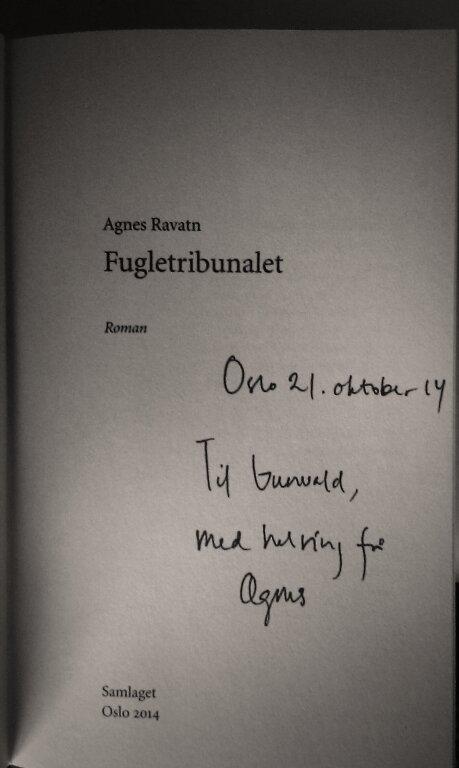 Agnes Ravatn
Fugletribunalet
Roman
Oslo 21. oktober 14
Til Gunvald,
med helsing frå
Agnes
Samlaget
Oslo 2014